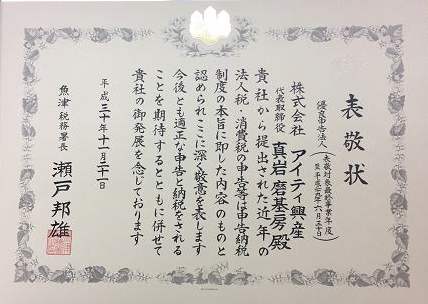 表敬状
優良申告法人
(表敬対象最終事業年度
株式会社 アイティ興産
代表取締役 真岩 磨基房 殿
貴社から提出された近年の
法人税・消費税の申告等は申告納税
制度の本旨に即した内容のものと
認められここに深く敬意を表します
今後とも適正な申告と納税をされる
ことを期待するとともに併せて
貴社の御発展を念じております
平成三十年十一月二十一日
魚津 税務署長
瀬戸邦雄